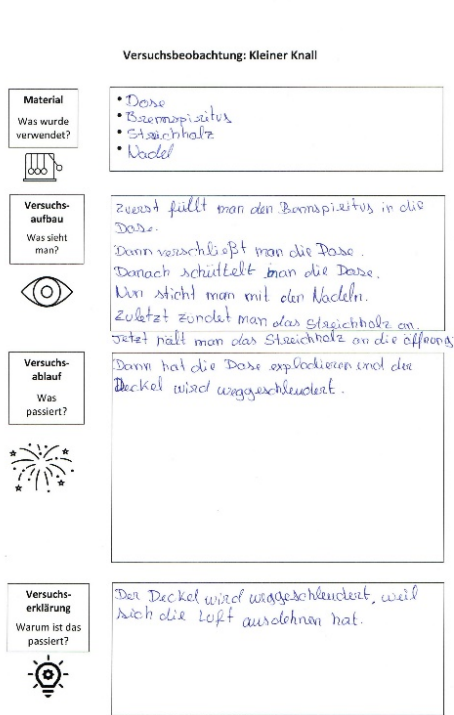 Versuchsbeobachtung: Kleiner Knall
Material
Was wurde
verwendet?
• Dose
• Brennspiritus
• Streichholz
• Nadel
Versuchs-
aufbau
Was sieht
man?
Zuerst füllt man den Bannspiritus in die
Dose.
Dann verschließt man die Dose.
Danach schüttelt man die Dose.
Nun sticht man mit der Nadeln.
Zuletzt zündet man das Streichholz an.
Jetzt hält man das Streichholz an die öffnung
Versuchs-
ablauf
Was
passiert?
Dann hat die Dose explodieren und der
Deckel wird weggeschleudert.
Versuchs-
erklärung
Warum ist das
passiert?
Der Deckel wird weggeschleudert, weil
sich die Luft ausdehnen hat.